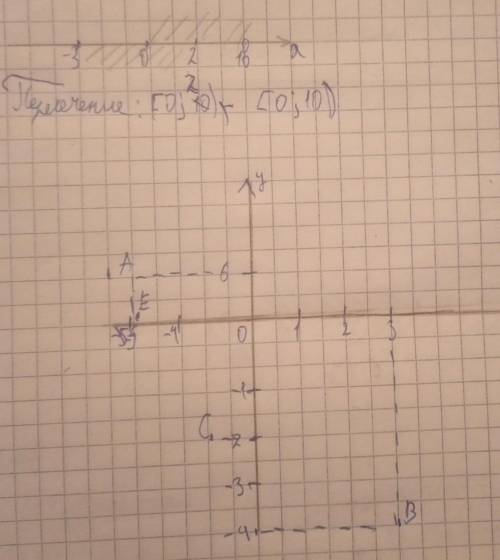 -3 0 2 10 x
Пересечение: [0; 2) [0; 10)
y
A 6
E
-5 -4 0 1 2 3
-1
C -2
-3
-4 B